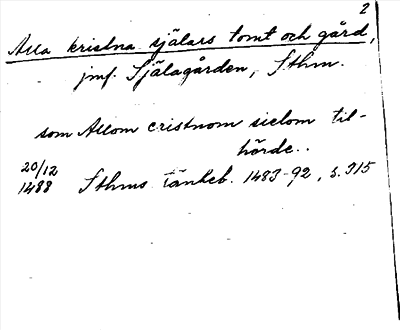 2
Alla kristna själars tomt och gård,
jmf. Själagården, Sthm.
som Allom cristnom sielom til-
hörde..
20/12
1488 Sthms tänkeb. 1483-92, s. 315